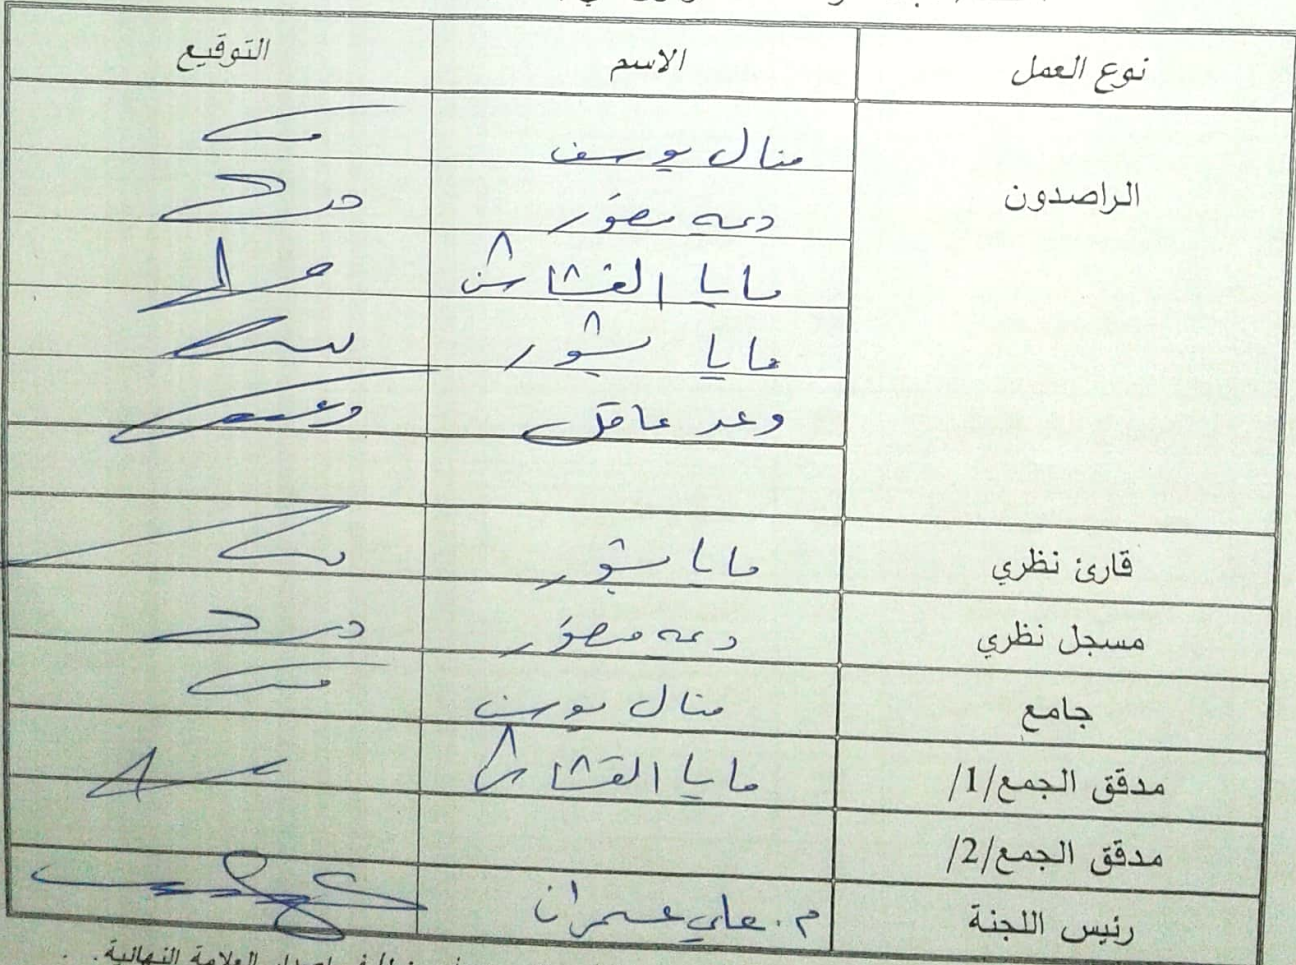 نوع العمل الاسم التوقيع
الراصدون
منال يوسف
ديمه منصور
مايا القشاش
مايا بشور
وعد عاقل
قارئ نظري مايا بشور
مسجل نظري ديمه منصور
جامع منال يوسف
مدقق الجمع/1/ مايا القشاش
مدقق الجمع/2/
رئيس اللجنة م. علي عمران
العلامة النهائية.